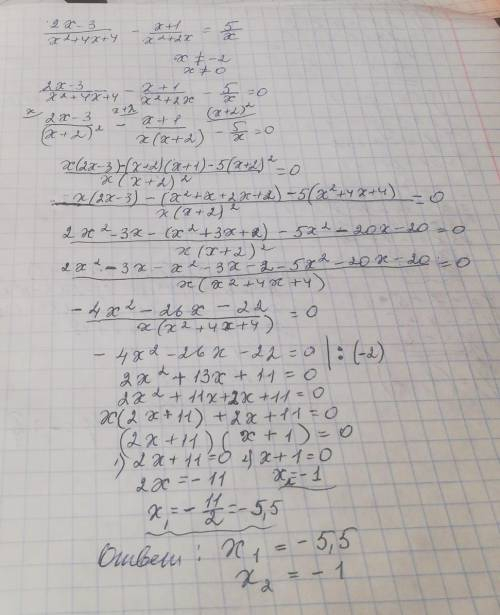 (2x-3)/(x²+4x+4) - (x+1)/(x²+2x) = 5/x
x ≠ -2
x ≠ 0
(2x-3)/(x²+4x+4) - (x+1)/(x²+2x) - 5/x = 0
x (2x-3)/(x+2)² - x+2 (x+1)/(x(x+2)) - (x+2)² 5/x = 0
(x(2x-3)-(x+2)(x+1)-5(x+2)²)/(x(x+2)²) = 0
(x(2x-3)-(x²+x+2x+2)-5(x²+4x+4))/(x(x+2)²) = 0
(2x²-3x-(x²+3x+2)-5x²-20x-20)/(x(x+2)²) = 0
(2x²-3x-x²-3x-2-5x²-20x-20)/(x(x²+4x+4)) = 0
(-4x²-26x-22)/(x(x²+4x+4)) = 0
-4x²-26x-22=0 |:(-2)
2x²+13x+11=0
2x²+11x+2x+11=0
x(2x+11)+2x+11=0
(2x+11)(x+1)=0
1) 2x+11=0 2) x+1=0
2x=-11 x₂=-1
x₁=-11/2=-5,5
Ответ: x₁=-5,5
x₂=-1